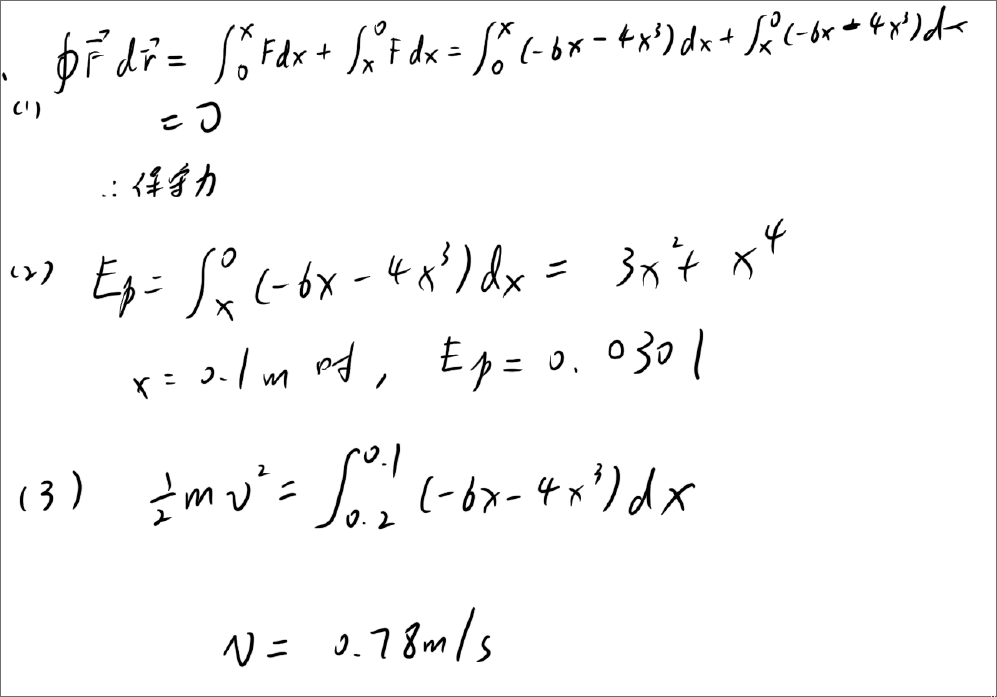 ∮F⃗ dr⃗ = ∫₀ˣ Fdx + ∫ₓ⁰ F dx = ∫₀ˣ (-6x - 4x³) dx + ∫ₓ⁰ (-6x - 4x³) dx
(1) = 0
∴ 保守力
(2) Ep = ∫ₓ⁰ (-6x - 4x³) dx = 3x² + x⁴
x = 0.1 m 时, Ep = 0.0301
(3) ½ m v² = ∫₀.₂⁰·¹ (-6x - 4x³) dx
v = 0.78 m/s